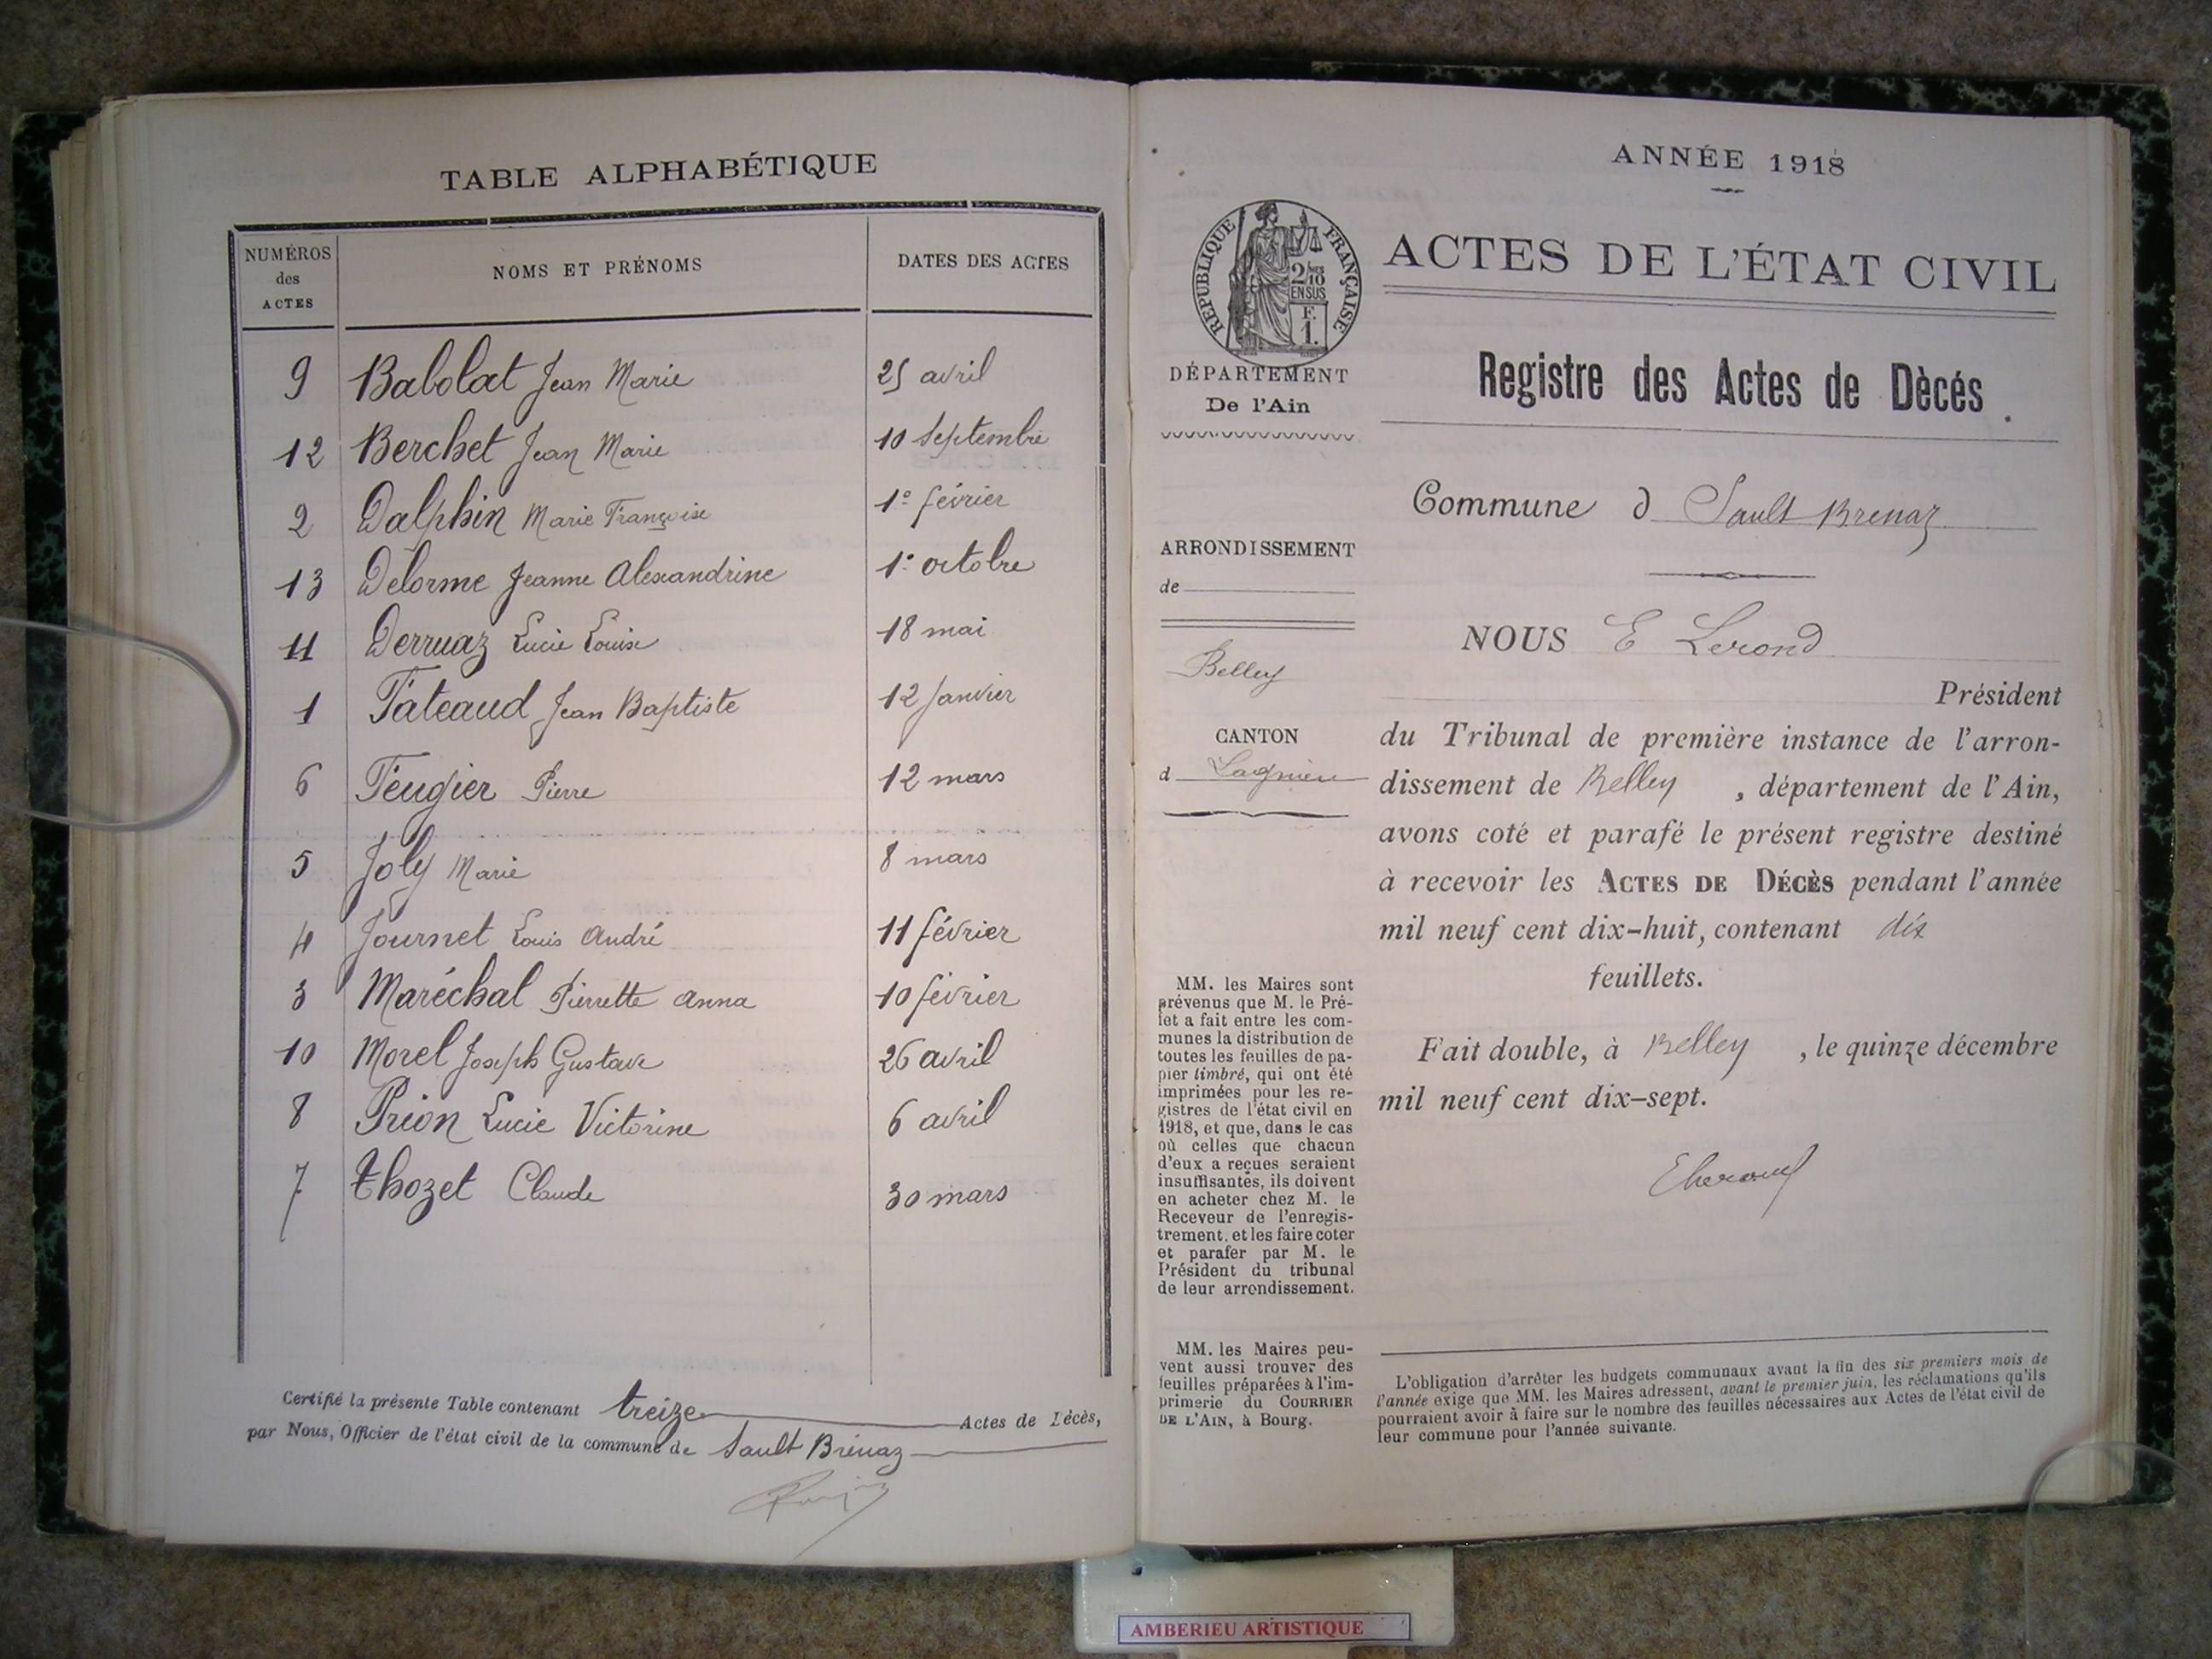 TABLE ALPHABÉTIQUE
NUMÉROS des ACTES NOMS ET PRÉNOMS DATES DES ACTES
9 Babolat Jean Marie 25 avril
12 Berchet Jean Marie 10 Septembre
2 Dalphin Marie Françoise 1º février
13 Delorme Jeanne Alexandrine 1º octobre
11 Derruaz Lucie Louise 18 mai
1 Fateaud Jean Baptiste 12 Janvier
6 Feugier Pierre 12 mars
5 Joly Marie 8 mars
4 Journet Louis André 11 février
3 Maréchal Pierrette Anna 10 février
10 Morel Joseph Gustave 26 avril
8 Prion Lucie Victorine 6 avril
7 Thozet Claude 30 mars
Certifié la présente Table contenant treize Actes de Décès,
par Nous, Officier de l'état civil de la commune de Sault Brénaz
ANNÉE 1918
RÉPUBLIQUE FRANÇAISE
2/10
EN SUS
F.
1.
ACTES DE L'ÉTAT CIVIL
DÉPARTEMENT
De l'Ain
Registre des Actes de Dècés
Commune d Sault Brenaz
ARRONDISSEMENT
de
Belley
CANTON
d Lagnieu
NOUS E Lerond
Président
du Tribunal de première instance de l'arron-
dissement de Belley , département de l'Ain,
avons coté et parafé le présent registre destiné
à recevoir les ACTES DE DÉCÈS pendant l'année
mil neuf cent dix-huit, contenant dix
feuillets.
Fait double, à Belley , le quinze décembre
mil neuf cent dix-sept.
MM. les Maires sont
prévenus que M. le Pré-
fet a fait entre les com-
munes la distribution de
toutes les feuilles de pa-
pier timbré, qui ont été
imprimées pour les re-
gistres de l'état civil en
1918, et que, dans le cas
où celles que chacun
d'eux a reçues seraient
insuffisantes, ils doivent
en acheter chez M. le
Receveur de l'enregis-
trement, et les faire coter
et parafer par M. le
Président du tribunal
de leur arrondissement.
MM. les Maires peu-
vent aussi trouver des
feuilles préparées à l'im-
primerie du COURRIER
DE L'AIN, à Bourg.
L'obligation d'arrêter les budgets communaux avant la fin des six premiers mois de
l'année exige que MM. les Maires adressent, avant le premier juin, les réclamations qu'ils
pourraient avoir à faire sur le nombre des feuilles nécessaires aux Actes de l'état civil de
leur commune pour l'année suivante.
AMBERIEU ARTISTIQUE